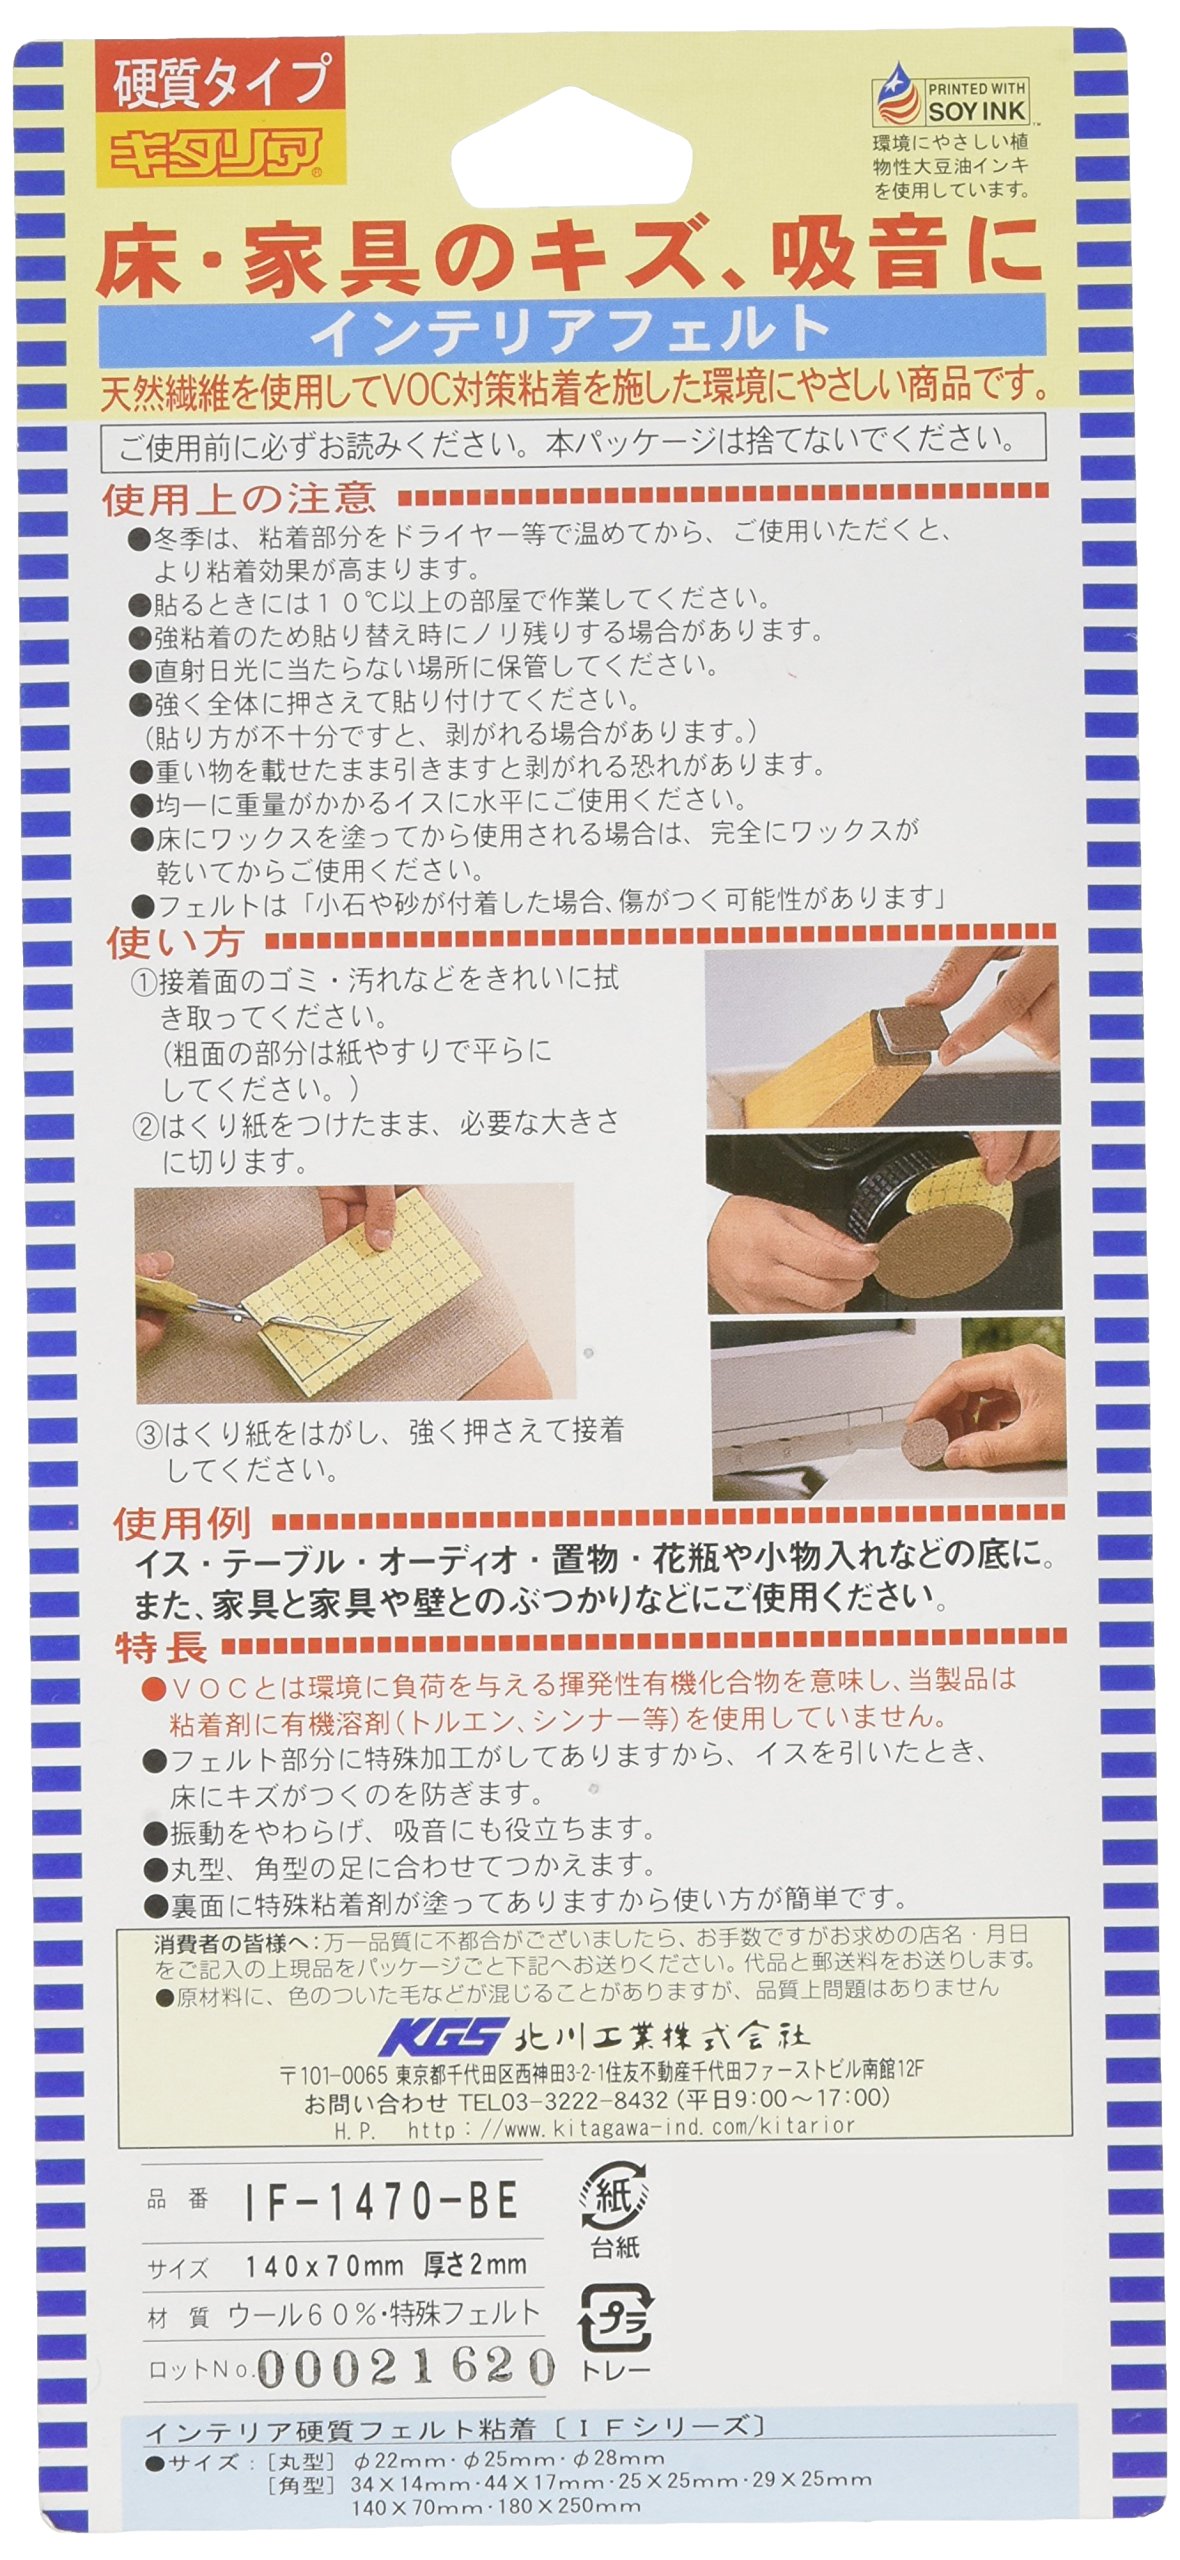 硬質タイプ
キタリア®
PRINTED WITH
SOY INK™
環境にやさしい植
物性大豆油インキ
を使用しています。
床・家具のキズ、吸音に
インテリアフェルト
天然繊維を使用してVOC対策粘着を施した環境にやさしい商品です。
ご使用前に必ずお読みください。本パッケージは捨てないでください。
使用上の注意
●冬季は、粘着部分をドライヤー等で温めてから、ご使用いただくと、
より粘着効果が高まります。
●貼るときには10℃以上の部屋で作業してください。
●強粘着のため貼り替え時にノリ残りする場合があります。
●直射日光に当たらない場所に保管してください。
●強く全体に押さえて貼り付けてください。
(貼り方が不十分ですと、剥がれる場合があります。)
●重い物を載せたまま引きますと剥がれる恐れがあります。
●均一に重量がかかるイスに水平にご使用ください。
●床にワックスを塗ってから使用される場合は、完全にワックスが
乾いてからご使用ください。
●フェルトは「小石や砂が付着した場合、傷がつく可能性があります」
使い方
①接着面のゴミ・汚れなどをきれいに拭
き取ってください。
(粗面の部分は紙やすりで平らに
してください。)
②はくり紙をつけたまま、必要な大きさ
に切ります。
③はくり紙をはがし、強く押さえて接着
してください。
使用例
イス・テーブル・オーディオ・置物・花瓶や小物入れなどの底に。
また、家具と家具や壁とのぶつかりなどにご使用ください。
特長
●VOCとは環境に負荷を与える揮発性有機化合物を意味し、当製品は
粘着剤に有機溶剤(トルエン、シンナー等)を使用していません。
●フェルト部分に特殊加工がしてありますから、イスを引いたとき、
床にキズがつくのを防ぎます。
●振動をやわらげ、吸音にも役立ちます。
●丸型、角型の足に合わせてつかえます。
●裏面に特殊粘着剤が塗ってありますから使い方が簡単です。
消費者の皆様へ:万一品質に不都合がございましたら、お手数ですがお求めの店名・月日
をご記入の上現品をパッケージごと下記へお送りください。代品と郵送料をお送りします。
●原材料に、色のついた毛などが混じることがありますが、品質上問題はありません
KGS 北川工業株式会社
〒101-0065 東京都千代田区西神田3-2-1住友不動産千代田ファーストビル南館12F
お問い合わせ TEL03-3222-8432(平日9:00～17:00)
H.P. http://www.kitagawa-ind.com/kitarior
品 番 IF-1470-BE
サイズ 140x70mm 厚さ2mm
材 質 ウール60%・特殊フェルト
ロットNo.00021620
紙
台紙
プラ
トレー
インテリア硬質フェルト粘着〔IFシリーズ〕
●サイズ:[丸型] φ22mm・φ25mm・φ28mm
[角型] 34×14mm・44×17mm・25×25mm・29×25mm
140×70mm・180×250mm